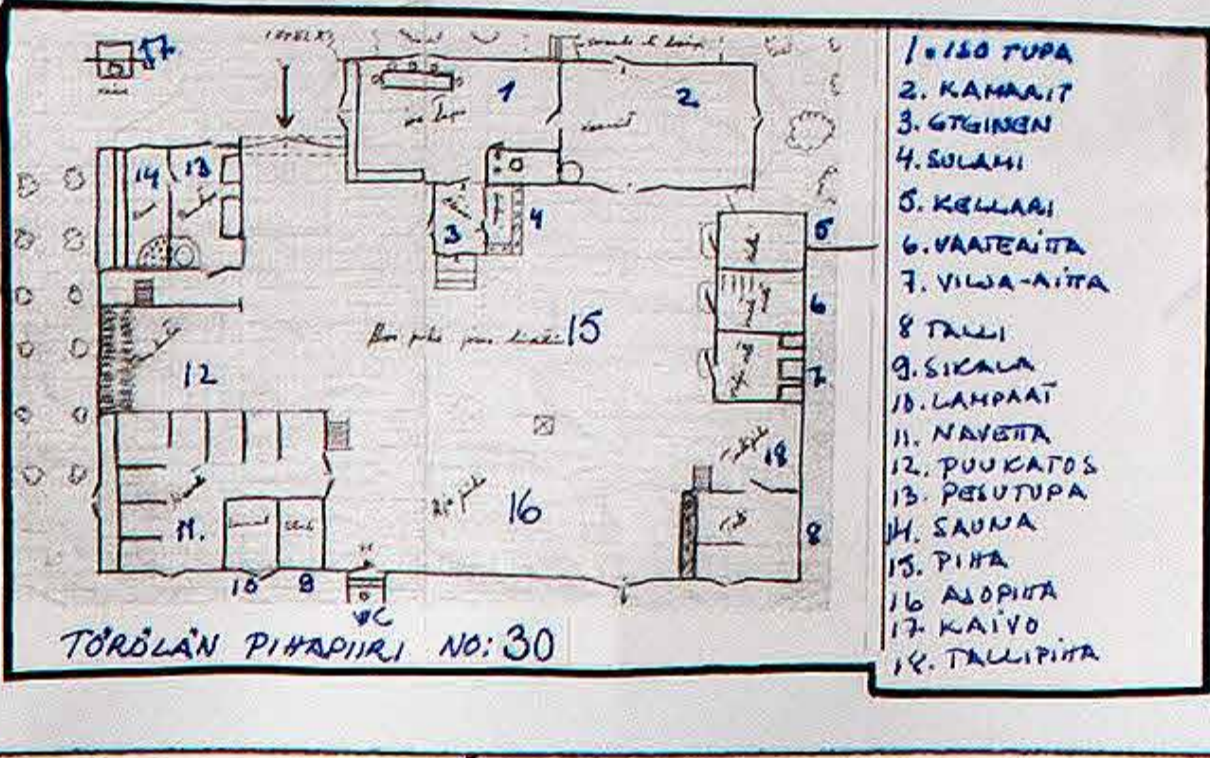 17
1
2
iso tupa
14
13
3
4
5
6
7
15
12
18
16
11.
8
10
9
WC
TÖRÖLÄN PIHAPIIRI NO: 30
1. ISO TUPA
2. KAMARIT
3. ETEINEN
4. SULAMI
5. KELLARI
6. VAATEAITTA
7. VILJA-AITTA
8 TALLI
9. SIKALA
10. LAMPAAT
11. NAVETTA
12. PUUKATOS
13. PESUTUPA
14. SAUNA
15. PIHA
16 AJOPIHA
17. KAIVO
18. TALLIPIHA